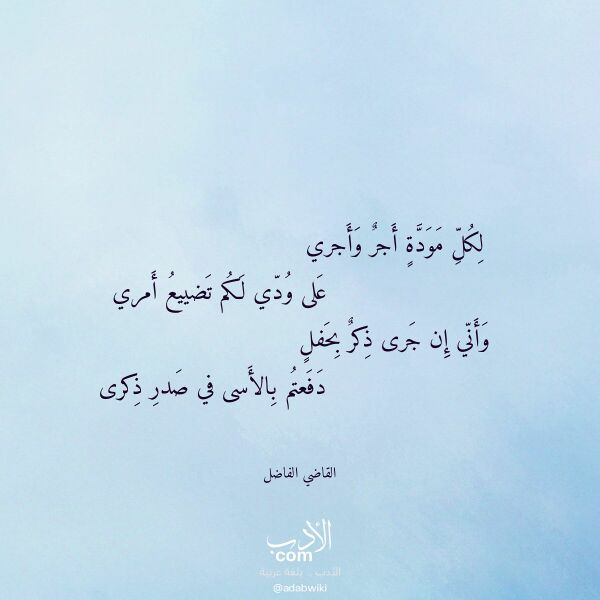 لِكُلِّ مَوَدَّةٍ أَجرٌ وَأَجري
عَلى وُدّي لَكُم تَضييعُ أَمري
وَأَنّي إِن جَرى ذِكرٌ بِحَفلٍ
دَفَعتُم بِالأَسى في صَدرِ ذِكرى
القاضي الفاضل
الأدب
com
الأدب .. بلغة عربية
@adabwiki